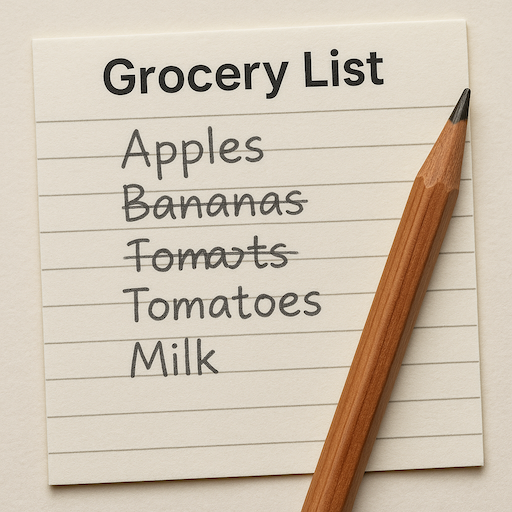 Grocery List
Apples
Bananas
Tomats
Tomatoes
Milk